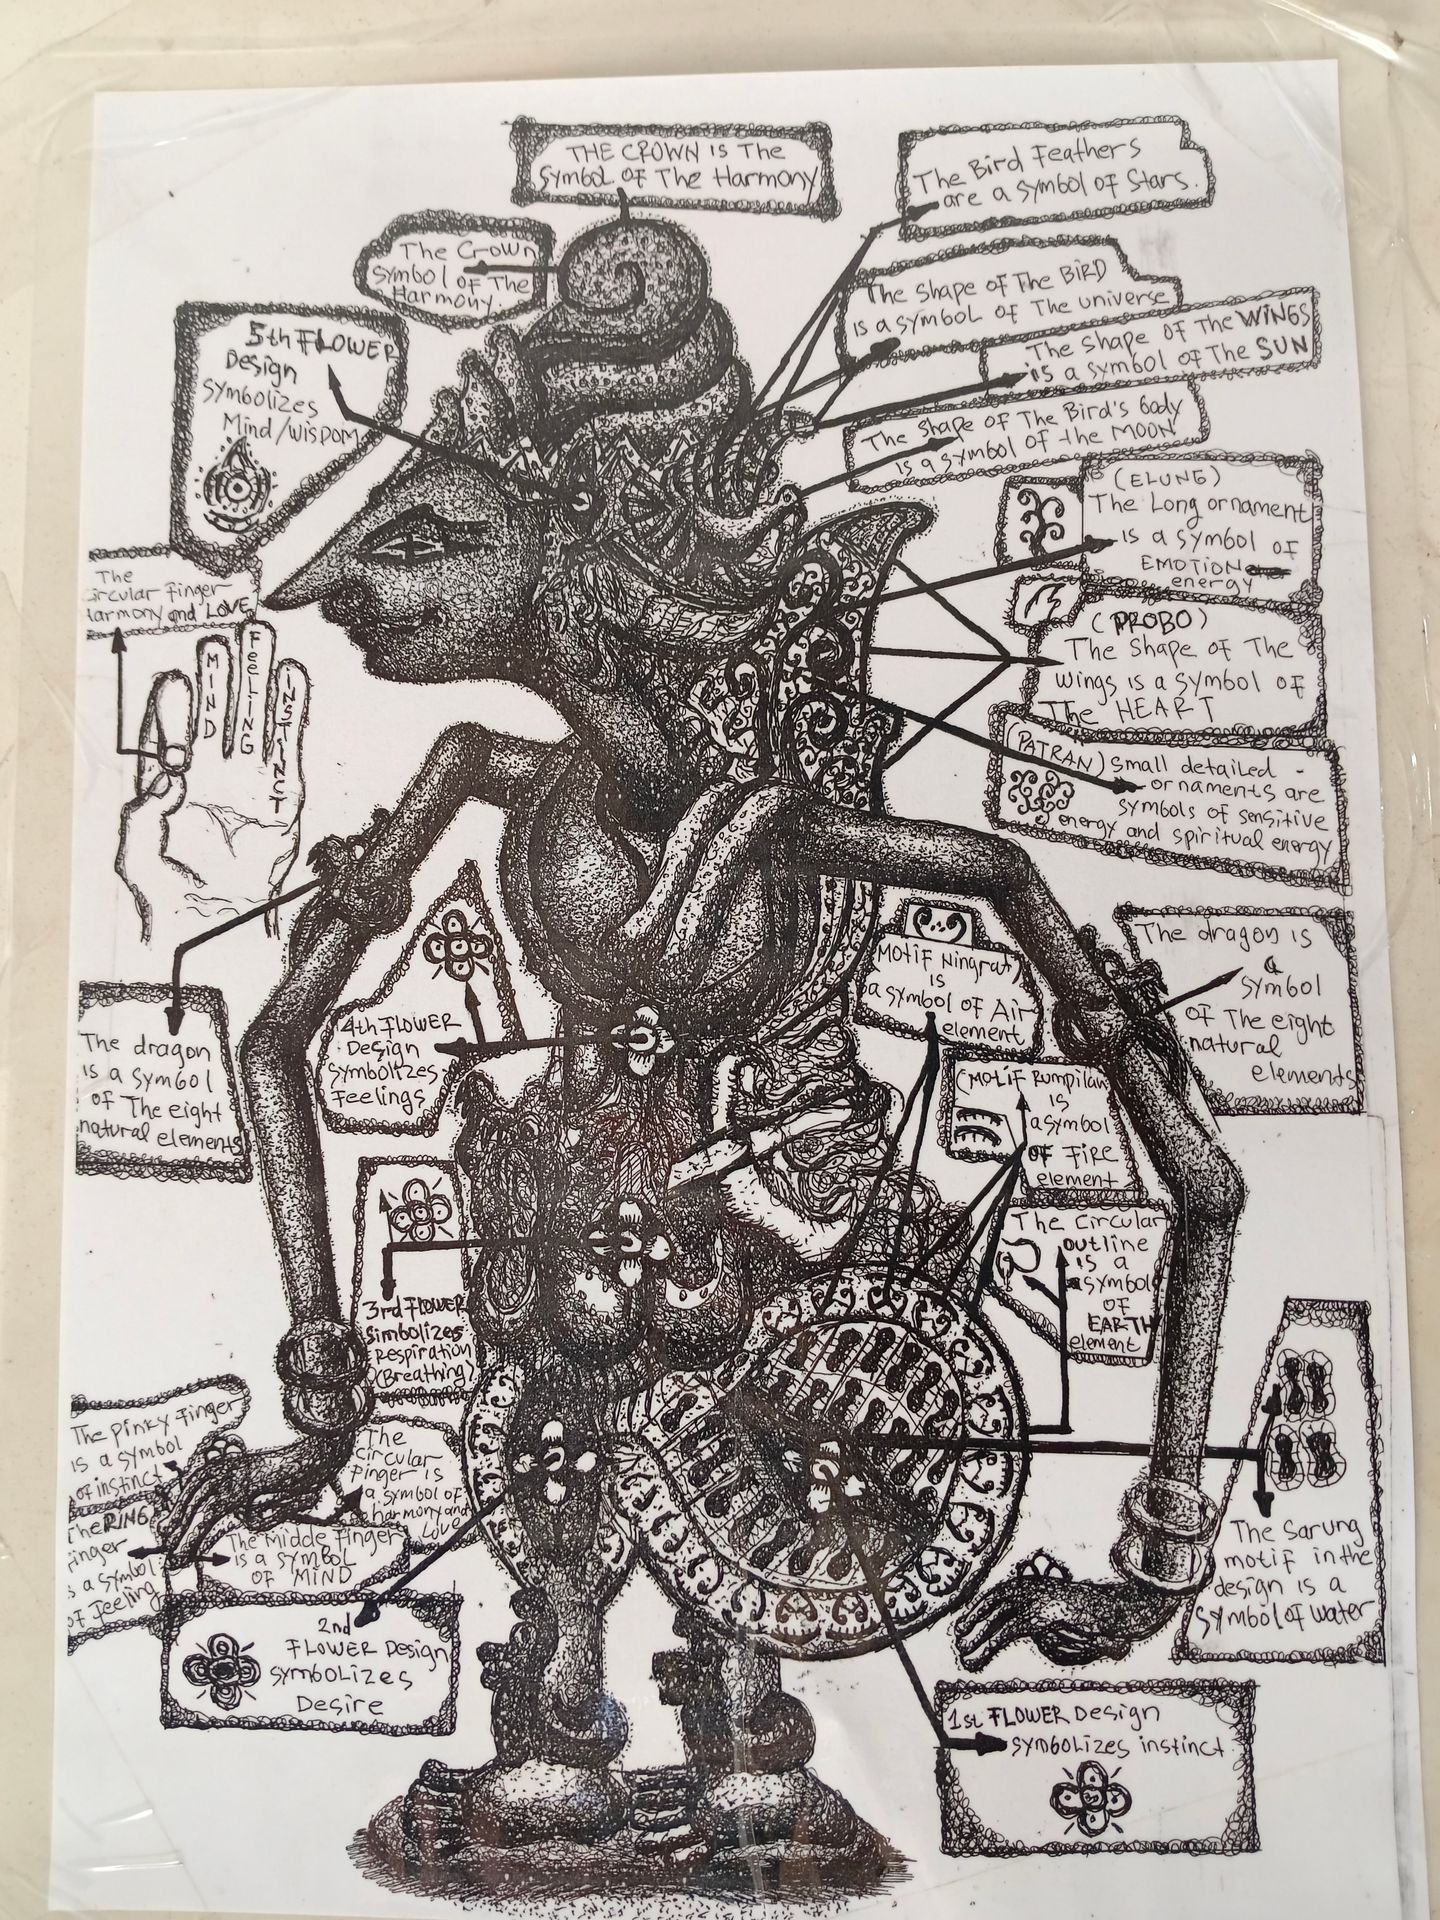 THE CROWN is The
Symbol of The Harmony
The Bird Feathers
are a Symbol of Stars.
The Crown
Symbol of The
Harmony.
The Shape of The BIRD
is a symbol of The universe
The Shape of The WINGS
is a symbol of The SUN
The Shape of The Bird's body
is a symbol of the MOON
5th FLOWER
Design
Symbolizes
Mind/WISDOM
(ELUNG)
The Long ornament
is a symbol of
EMOTION
energy
The
ircular finger
armony and LOVE
MIND
FeeLING
INSTINCT
(PROBO)
The Shape of The
wings is a symbol of
The HEART
(PATRAN) Small detailed -
ornaments are
symbols of sensitive
energy and spiritual energy
The dragon is
a
Symbol
of The eight
natural
elements
Motif Ningrat)
is
a symbol of Air
element
4th FLOWER
Design
Symbolizes
Feelings
The dragon
is a symbol
of The eight
natural elements
(Motif Rumpilan
is
a symbol
of Fire
element
The Circular
outline
is a
symbol
of
EARTH
element
3rd FLOWER
Simbolizes
Respiration
(Breathing)
The Pinky Finger
is a symbol
of instinct
The
Circular
Finger is
a symbol of
harmony and
Love
The RING
inger
s a symbol
of Feeling
The Midde finger
is a symbol
OF MIND
The Sarung
motif in the
design is a
symbol of water
2nd
FLOWER Design
Symbolizes
Desire
1st FLOWER Design
Symbolizes instinct